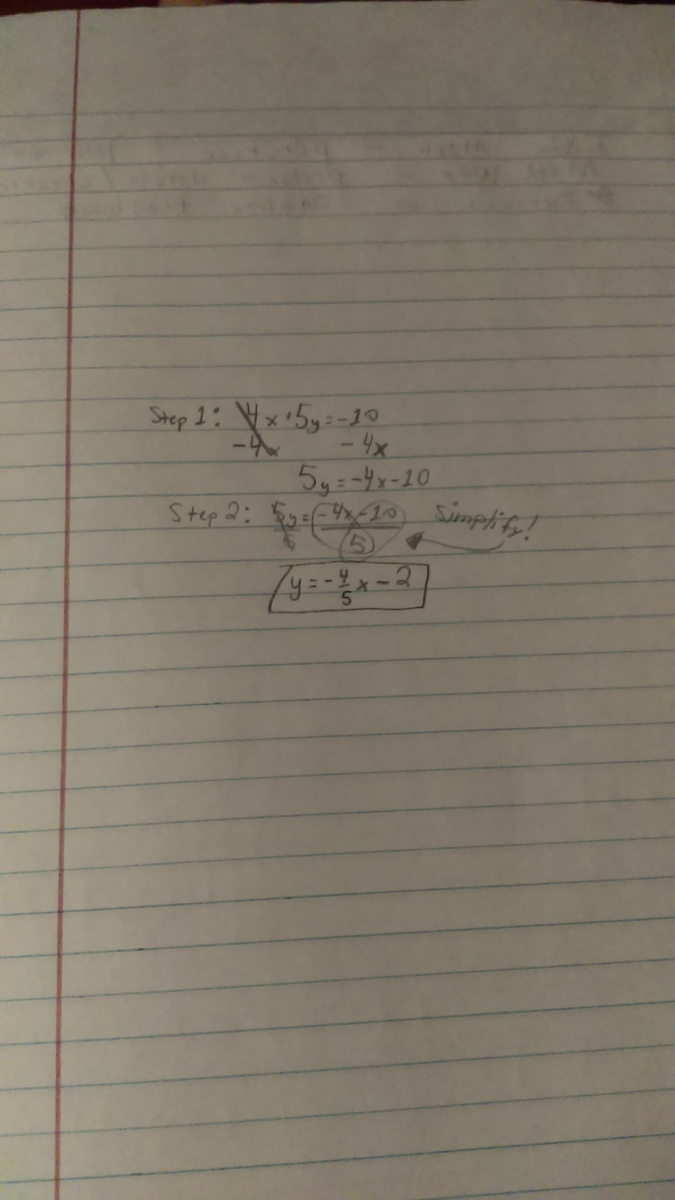 Step 1: 4x+5y=-10
-4x -4x
5y=-4x-10
Step 2: 5y/5=-4x-10/5 Simplify!
y=-4/5x-2